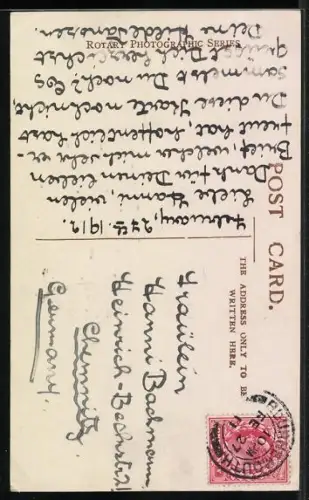 ROTARY PHOTOGRAPHIC SERIES
POST CARD.
THE ADDRESS ONLY TO BE
WRITTEN HERE.
February, 27th. 1912.
Liebe Hanni, vielen
Dank für Deinen lieben
Brief, welcher mich sehr er-
freut hat, hoffentlich hast
Du diese Karte noch nicht,
sammelst Du noch? Es
grüsst Dich herzlichst
Deine Hilde Janssen.
Fräulein
Hanni Bachmann
Heinrich-Beckstr. 21
Chemnitz
Germany.
BOURNEMOUTH